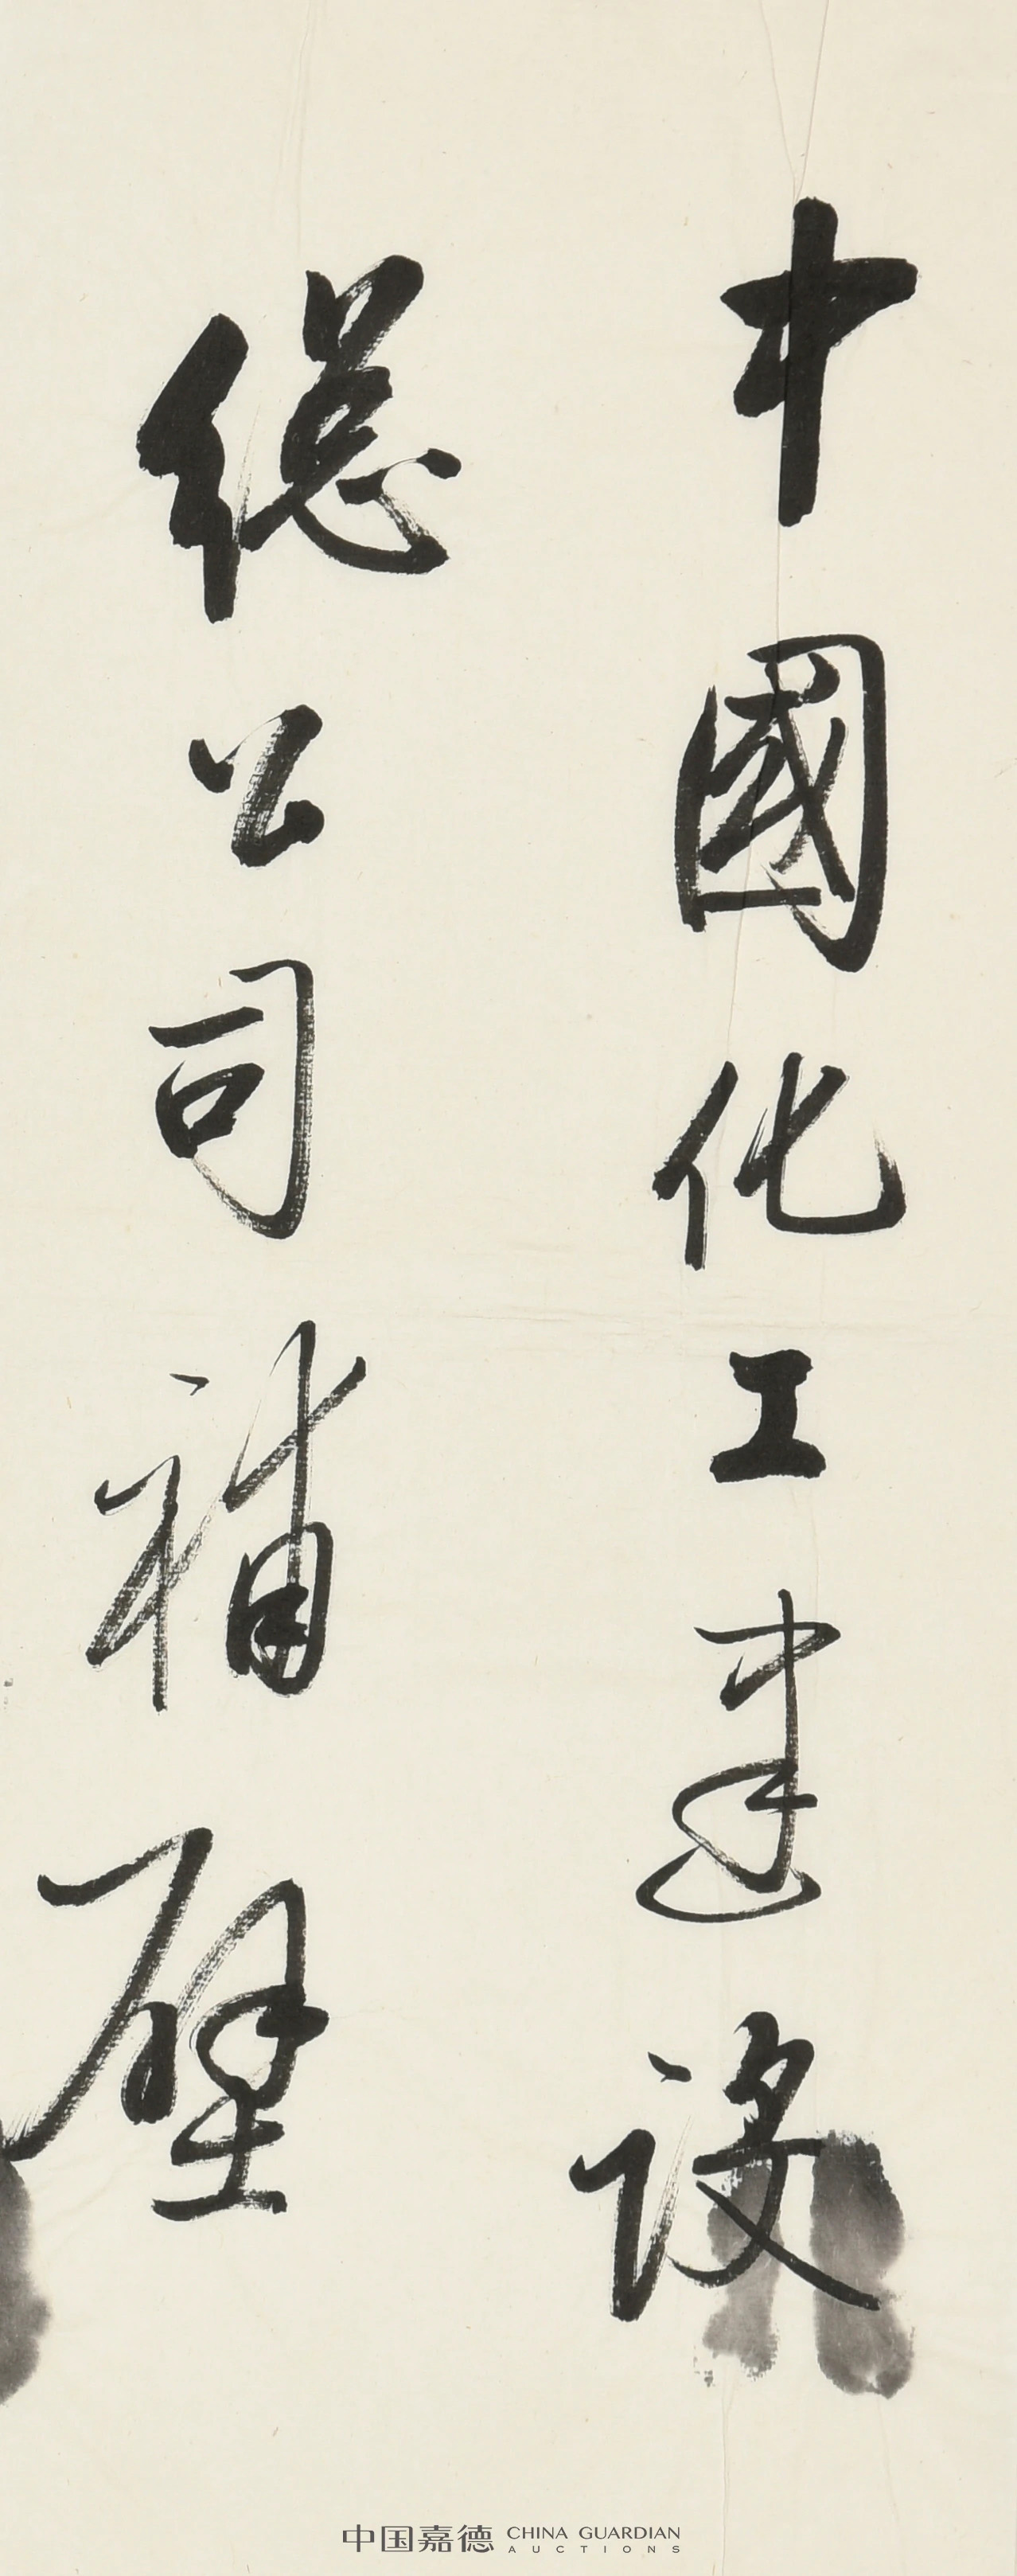 中國化工建设
總公司補壁
中国嘉德 CHINA GUARDIAN
AUCTIONS